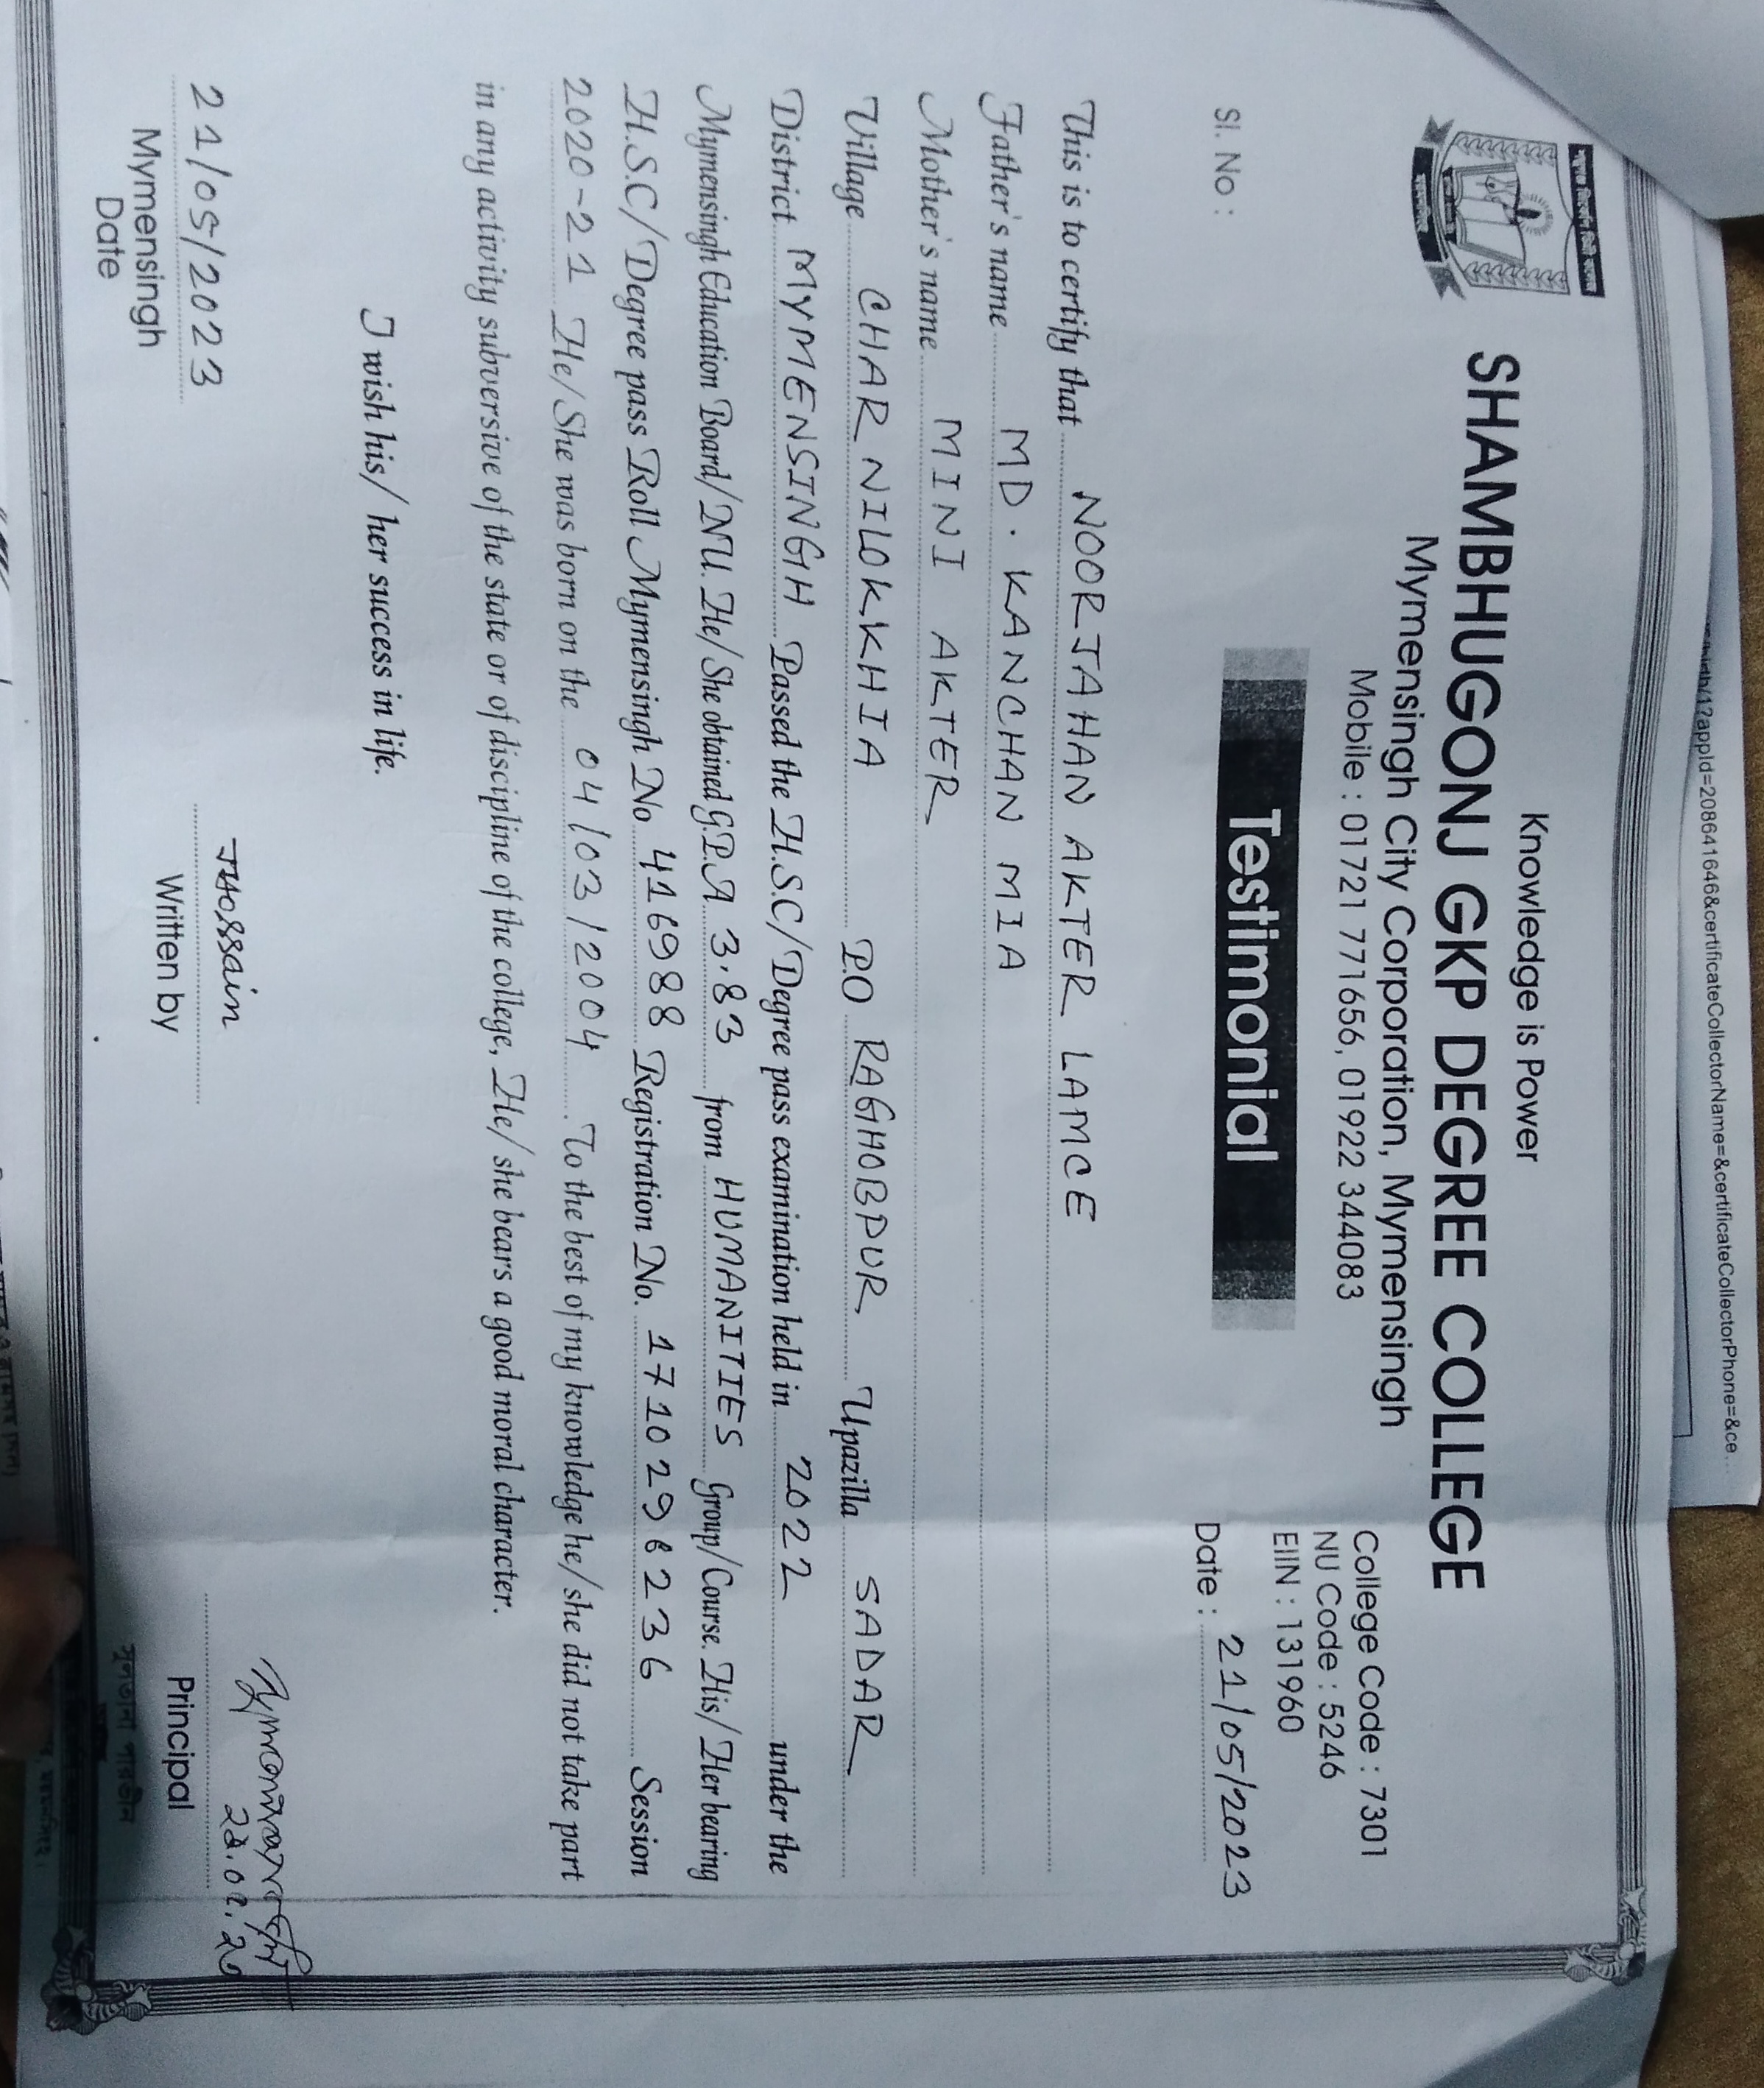 Knowledge is Power
SHAMBHUGONJ GKP DEGREE COLLEGE
Mymensingh City Corporation, Mymensingh
Mobile : 01721 771656, 01922 344083
College Code : 7301
NU Code : 5246
EIIN : 131960
Sl. No :
Testimonial
Date : 21/05/2023
This is to certify that NOORJAHAN AKTER LAMCE
Father's name MD. KANCHAN MIA
Mother's name MINI AKTER
Village CHAR NILOKKHIA P.O RAGHOBPUR Upazilla SADAR
District MYMENSINGH Passed the H.S.C/Degree pass examination held in 2022 under the
Mymensingh Education Board/NU. He/She obtained G.P.A 3.83 from HUMANITIES Group/Course. His/Her bearing
H.S.C/Degree pass Roll Mymensingh No 416988 Registration No. 1710296236 Session
2020-21 He/She was born on the 04/03/2004. To the best of my knowledge he/she did not take part
in any activity subversive of the state or of discipline of the college, He/she bears a good moral character.
I wish his/her success in life.
21/05/2023
Mymensingh
Date
Hossain
Written by
Principal
সুলতানা পারভীন
appId=208641646&certificateCollectorName=&certificateCollectorPhone=&ce...